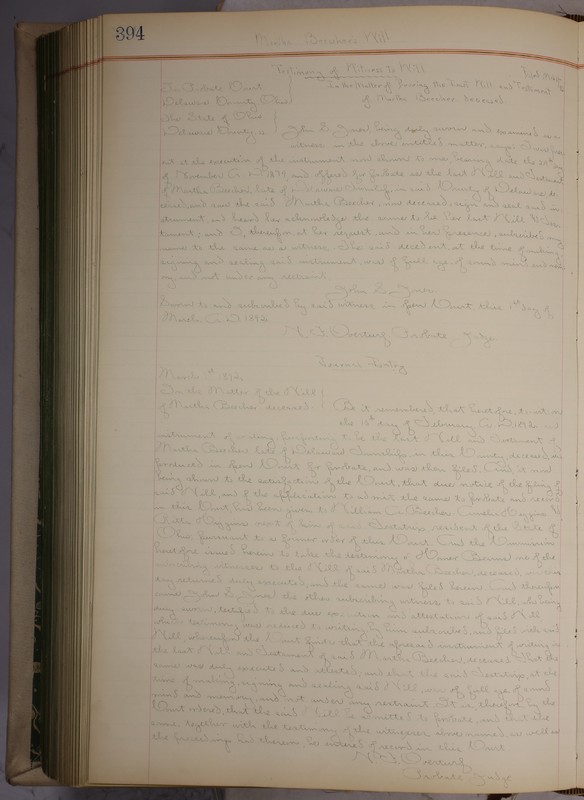 394
Martha Beecher Will
Testimony of Witness to Will
In Probate Court
In the Matter of Proving the Last Will and Testament
Delaware County Ohio
of Martha Beecher deceased
The State of Ohio
Delaware County ss
John S. Jones being duly sworn and examined as a
witness in the above entitled matter, says: I was pres-
ent at the execution of the instrument now shown to me bearing date the
of November A.D. 1870 and offered for probate as the last Will and Testament
of Martha Beecher late of Delaware Township, in said County of Delaware de-
ceased, and saw the said Martha Beecher, now deceased, sign and seal said in-
strument and heard her acknowledge the same to be her last Will & Testa-
ment; and I, thereupon, at her request, and in her presence, subscribed my
name to the same as a witness. The said decedent, at the time of making
signing and sealing said instrument, was of full age, of sound mind and memo-
ry, and not under any restraint.
John S. Jones
Sworn to and subscribed by said witness in open Court this 1st day of
March A.D. 1892
Overturf Probate Judge
March 1892
In the Matter of the Will
of Martha Beecher deceased
Be it remembered that heretofore, to wit on
the day of February A.D. 1892 an
instrument of writing, purporting to be the last Will and Testament of
Martha Beecher late of Delaware Township in this County, deceased, was
produced in open Court for probate, and was then filed. And it now
being shown to the satisfaction of the Court, that due notice of the filing of
said Will, and of the application to admit the same to probate and record
in this Court, had been given to William A. Beecher
next of kin of said Testatrix, resident of the State of
Ohio, pursuant to a former order of this Court. And the Commission
heretofore issued herein to take the testimony of Homer one of the
subscribing witnesses to the Will of said Martha Beecher deceased, was
day returned duly executed, and the same was filed herein. And thereupon
came John S. Jones the other subscribing witness to said Will who being
duly sworn, testified to the due execution and attestation of said Will
which testimony was reduced to writing by him subscribed and filed with said
Will, whereupon the Court finds that the aforesaid instrument of writing is
the last Will and Testament of said Martha Beecher, deceased, that the
same was duly executed and attested, and that the said Testatrix, at the
time of making, signing and sealing said Will, was of full age, of sound
mind and memory and not under any restraint. It is therefore by the
Court ordered, that the said Will be admitted to probate, and that the
same, together with the testimony of the witnesses above named, as well as
the proceedings had therein be entered of record in this Court.
Overturf
Probate Judge